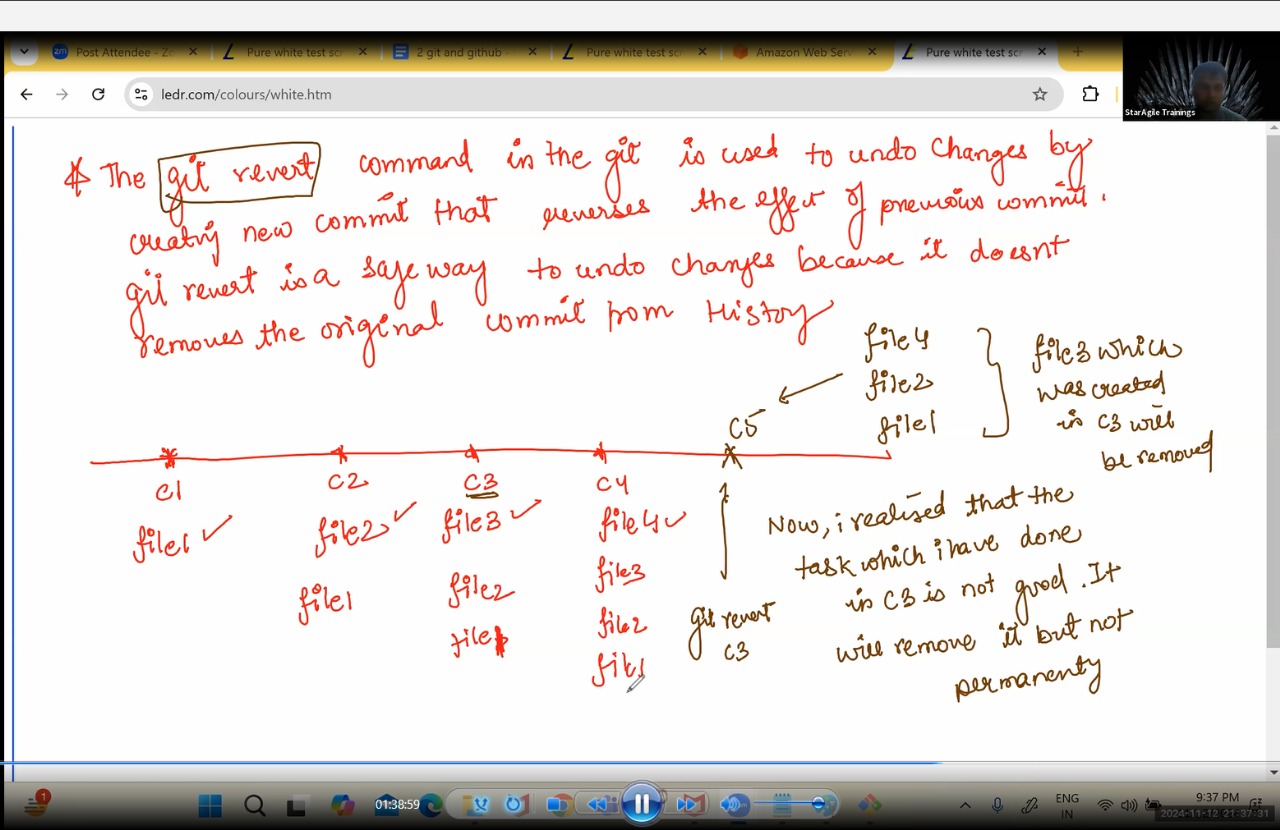 Post Attendee - Zo
Pure white test scr
2 git and github -
Pure white test scr
Amazon Web Serv
Pure white test scr
ledr.com/colours/white.htm
StarAgile Trainings
* The git revert command in the git is used to undo changes by
creating new commit that reverses the effect of previous commit.
git revert is a safe way to undo changes because it doesnt
removes the original commit from History
file4
file2
file1
file3 which
was created
in C3 will
be removed
C5
C1
C2
C3
C4
file1
file2
file1
file3
file2
file1
file4
file3
file2
file1
git revert
C3
Now, i realised that the
task which i have done
in C3 is not good. It
will remove it but not
permanenty
1
01:38:59
ENG
IN
9:37 PM
2024-11-12 21:37:31